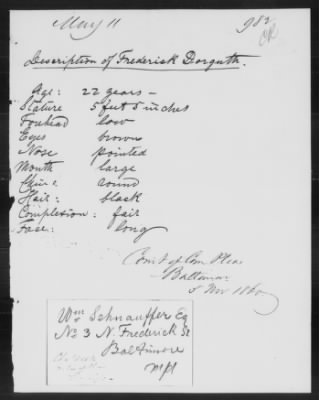 May 11
982
Description of Frederick Dorguth.
Age: 22 years –
Stature 5 feet 5 inches
Forehead low
Eyes brown
Nose pointed
Mouth large
Chin: round
Hair: black
Complexion: fair
Face: long
Court of Com Pleas
Baltimore
5 Nov 1860
Wm Schnauffer Eq
No 3 N. Frederick St
Baltimore
Md